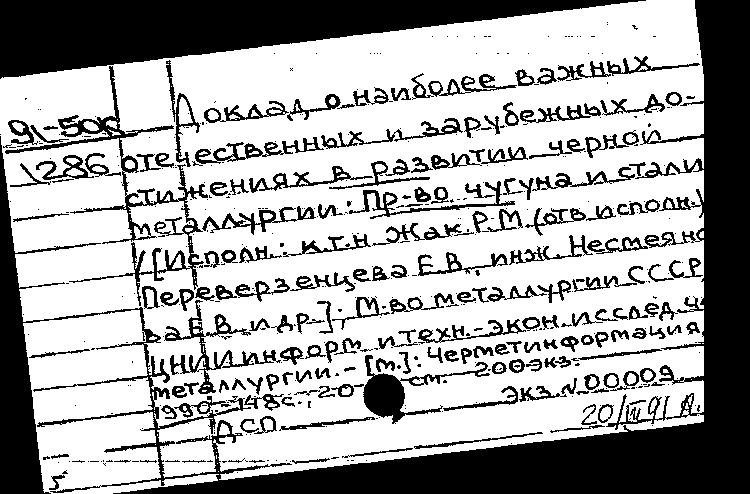 Доклад о наиболее важных
91-50к
1286 отечественных и зарубежных до-
стижениях в развитии черной
металлургии: Пр-во чугуна и стали
/[Исполн.: к.т.н. Жак Р.М. (отв. исполн.)
Переверзенцева Е.В., инж. Несмеяно
ва Е.В. и др.]; М-во металлургии СССР,
ЦНИИ информ. и техн.-экон. исслед. ч.
металлургии. - [М.]: Черметинформация,
1990. - 148 с.; 20 см. 200 экз.
ДСП. Экз. N 00009
20/III 91 А.
5